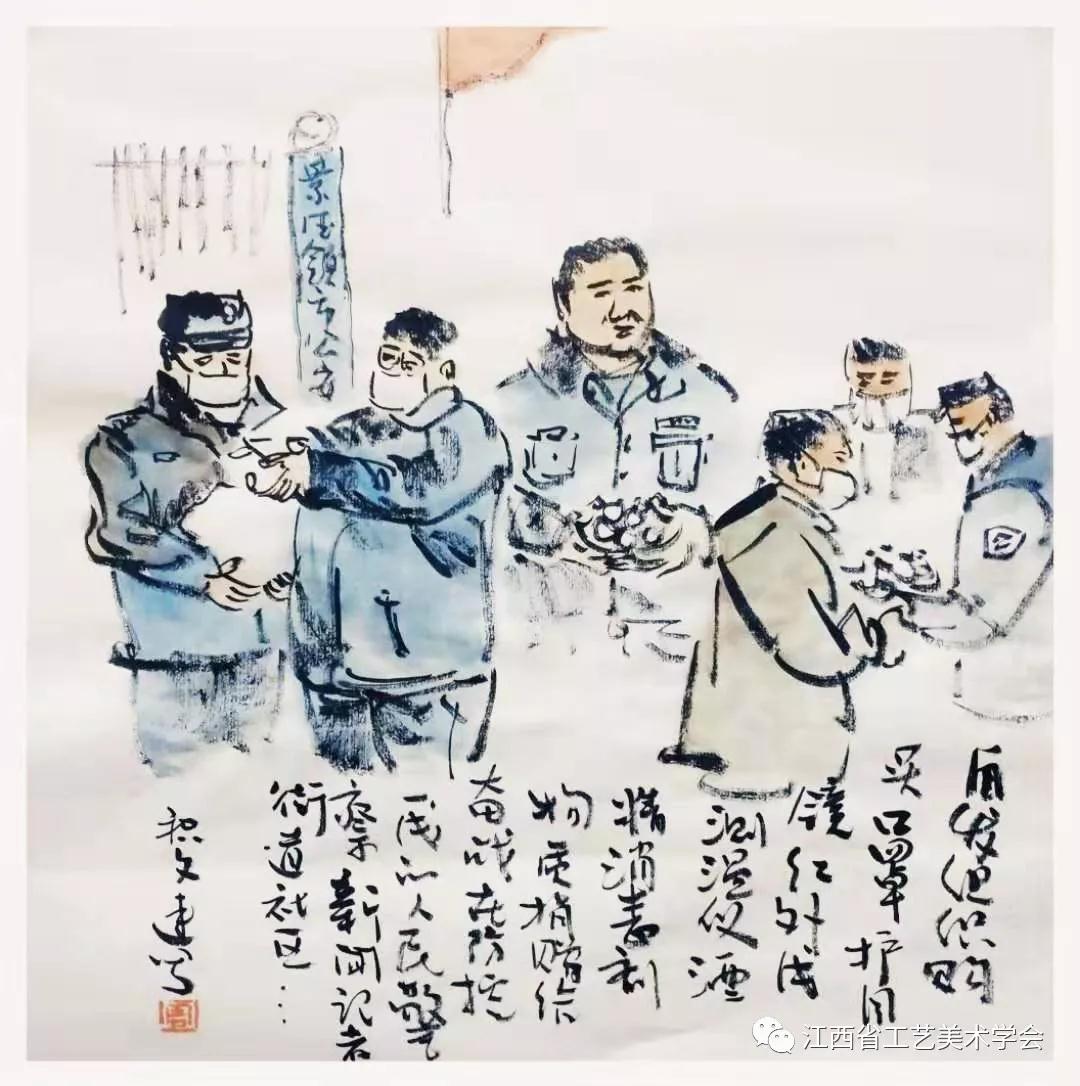 景德镇市公安
自发组织购
买口罩护目
镜红外线
测温仪酒
精消毒剂
物质捐赠给
奋战在防控
一线的人民警
察新闻记者
街道社区…
文建写
江西省工艺美术学会